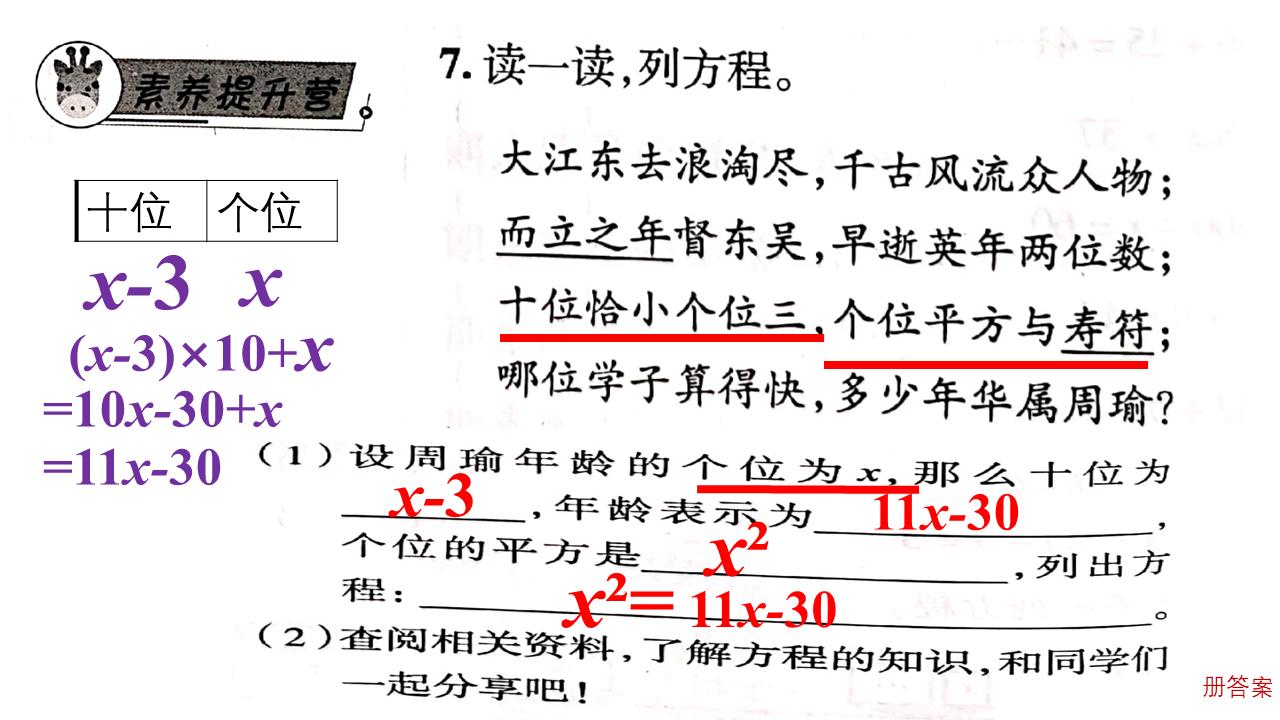 素养提升营
7.读一读,列方程。
大江东去浪淘尽,千古风流众人物;
而立之年督东吴,早逝英年两位数;
十位恰小个位三,个位平方与寿符;
哪位学子算得快,多少年华属周瑜?
十位 个位
x-3 x
(x-3)×10+x
=10x-30+x
=11x-30
(1)设周瑜年龄的个位为x,那么十位为
x-3,年龄表示为11x-30,
个位的平方是x²,列出方
程:x²=11x-30。
(2)查阅相关资料,了解方程的知识,和同学们
一起分享吧!
册答案